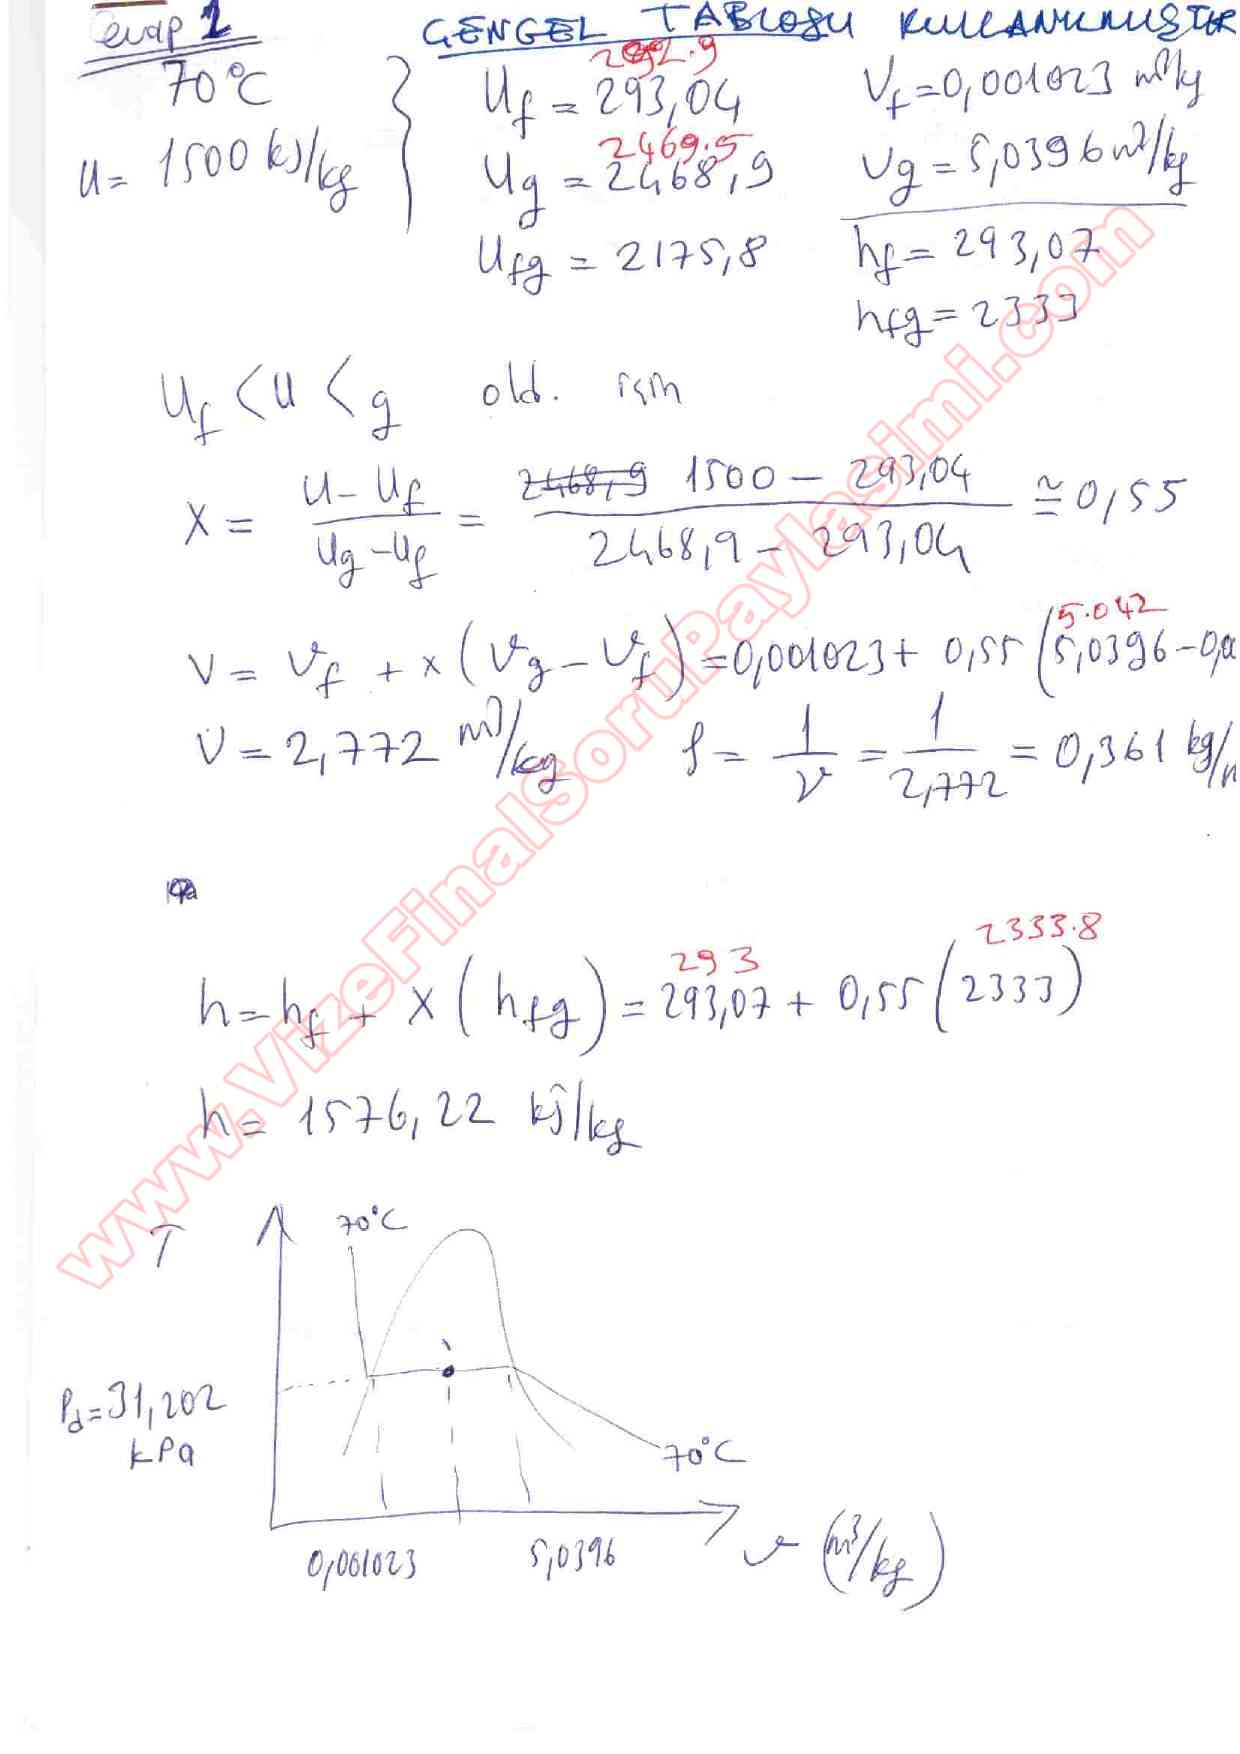 cevap 1
ÇENGEL TABLOSU KULLANILMIŞTIR
70°C
u = 1500 kJ/kg
292.9
Uf = 293,04
2469.5
Ug = 2468,9
Ufg = 2175,8
Vf = 0,001023 m³/kg
Vg = 5,0396 m³/kg
hf = 293,07
hfg = 2333
Uf < U < g old. için
X = U - Uf / Ug - Uf = 2468,9 1500 - 293,04 / 2468,9 - 293,04 ≅ 0,55
5.042
V = Vf + x (Vg - Vf) = 0,001023 + 0,55 (5,0396 - 0,0
V = 2,772 m³/kg
ρ = 1/V = 1/2,772 = 0,361 kg/m
293
2333.8
h = hf + X (hfg) = 293,07 + 0,55 (2333)
h = 1576,22 kJ/kg
T
70°C
Pd = 31,202
kPa
70°C
0,001023
5,0396
v (m³/kg)
www.VizeFinalSoruPaylasimi.com